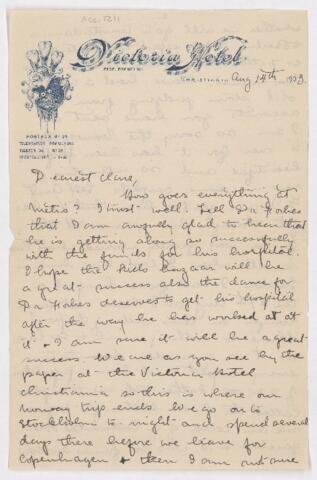 Acc. 1211
Victoria Hotel
Christiania Aug 14th 1923
Dearest Clare,
How goes everything at
Metis? I trust well. Tell Dr Forbes
that I am awfully glad to hear that
he is getting along so successfully
with the funds for his hospital.
I hope the Kids Bazaar will be
a great success also the dance for
Dr Forbes deserves to get his hospital
after the way he has worked at at
it & I am sure it will be a great
success. We are as you see by the
paper at the Victoria Hotel
Christiania so this is where our
Norway trip ends. We go on to
Stockholm to night and spend several
days there before we leave for
Copenhagen & then I am not sure